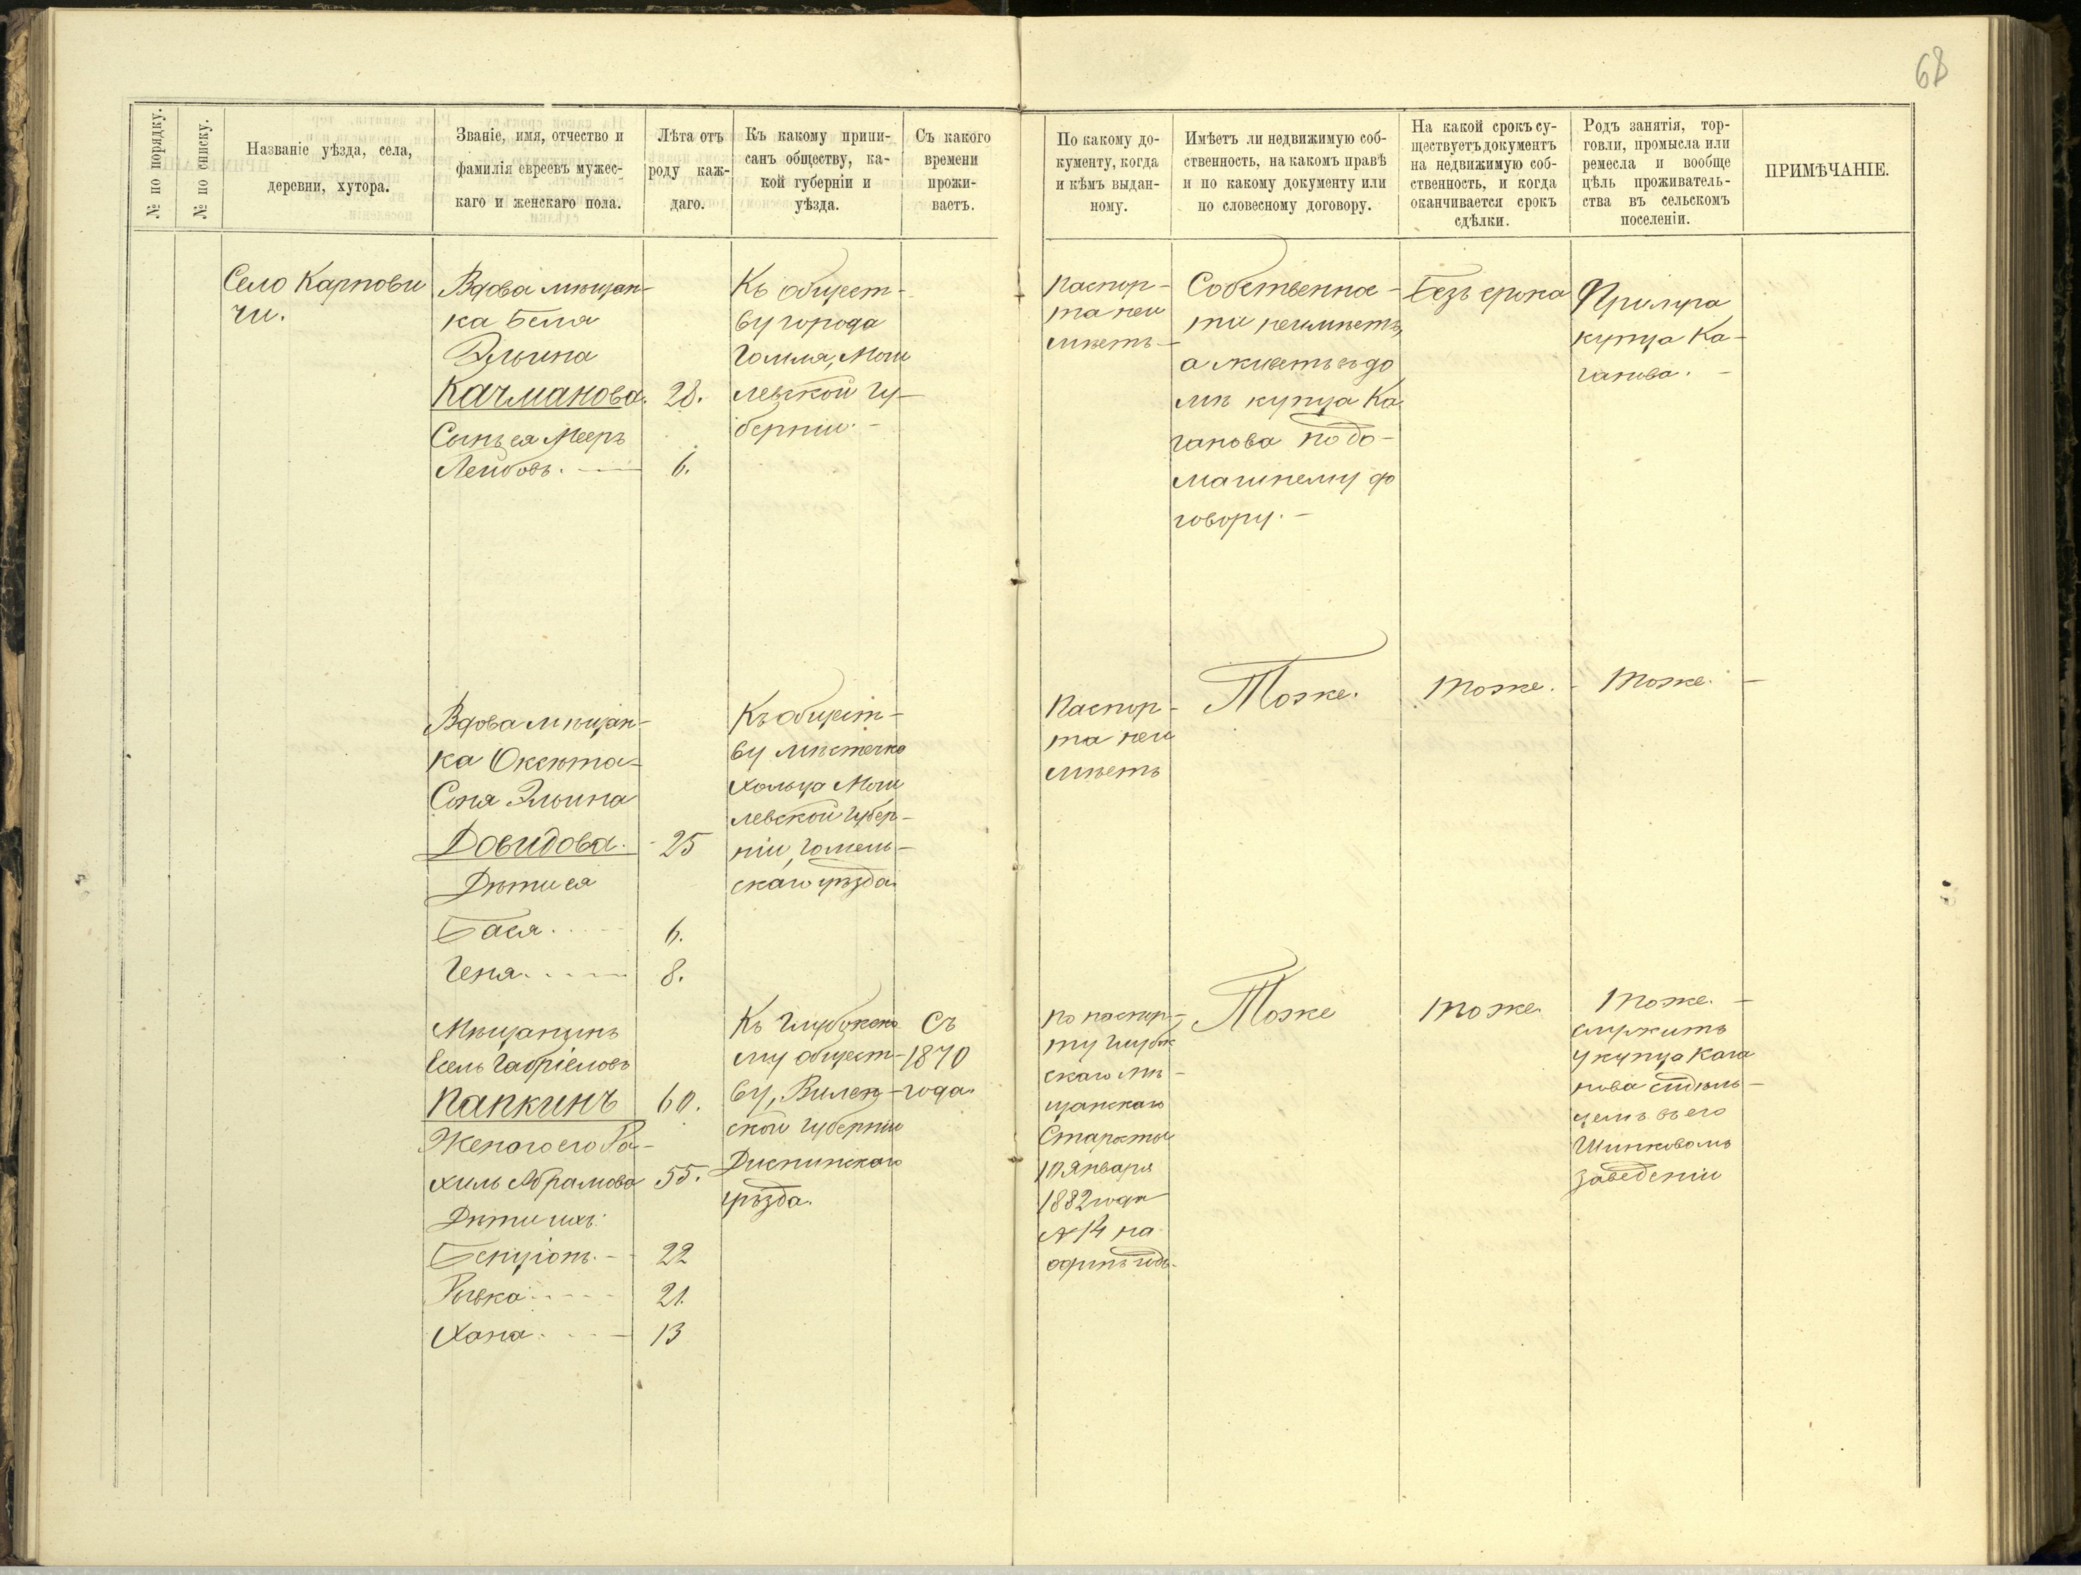 68
№ по порядку.
№ по списку.
Названіе уѣзда, села,
деревни, хутора.
Званіе, имя, отчество и
фамилія евреевъ мужес-
каго и женскаго пола.
Лѣта отъ
роду каж-
даго.
Къ какому припи-
санъ обществу, ка-
кой губерніи и
уѣзда.
Съ какого
времени
прожи-
ваетъ.
По какому до-
кументу, когда
и кѣмъ выдан-
ному.
Имѣетъ ли недвижимую соб-
ственность, на какомъ правѣ
и по какому документу или
по словесному договору.
На какой срокъ су-
ществуетъ документъ
на недвижимую соб-
ственность, и когда
оканчивается срокъ
сдѣлки.
Родъ занятія, тор-
говли, промысла или
ремесла и вообще
цѣль проживатель-
ства въ сельскомъ
поселеніи.
ПРИМѢЧАНІЕ.
Село Карпови
чи.
Вдова мѣщан-
ка Беля
Эльина
Качманова. 28.
Сынъ ея Мееръ
Лейбовъ. 6.
Къ общест-
ву города
Гомля, Моги
левской гу-
берніи. -
Паспор-
та неи
мѣетъ -
Собственнос-
ти неимѣетъ,
а живетъ въ до
мѣ купца Ка
ганова по до-
машнему до
говору. -
Безъ срока
Прислуга
купца Ка-
ганова. -
Вдова мѣщан-
ка
Соня Эльина
Довидова. 25
Дѣти ея
Бася. 6.
Геня. 8.
Къ общест-
ву мѣстечка
Хольча Моги
левской губер-
ніи, Гомель-
скаго уѣзда.
Паспор-
та неи
мѣетъ
Тоже.
Тоже. -
Тоже. -
Мѣщанинъ
Есель Габріеловъ
Папкинъ 60.
Жена его Ра-
хиль Абрамова 55.
Дѣти ихъ:
22
Рывка 21.
Хана. 13
Къ Глубокско
му общест-
ву, Вилен-
ской губерніи
Диснинскаго
уѣзда.
Съ
1870
года.
По паспор-
ту Глубок
скаго мѣ-
щанскаго
Старосты
10 Января
1882 года
№ 14 на
одинъ годъ.
Тоже
Тоже.
Тоже. -
служитъ
у купца Кага
нова сидѣль-
цемъ въ его
Шинковомъ
заведеніи